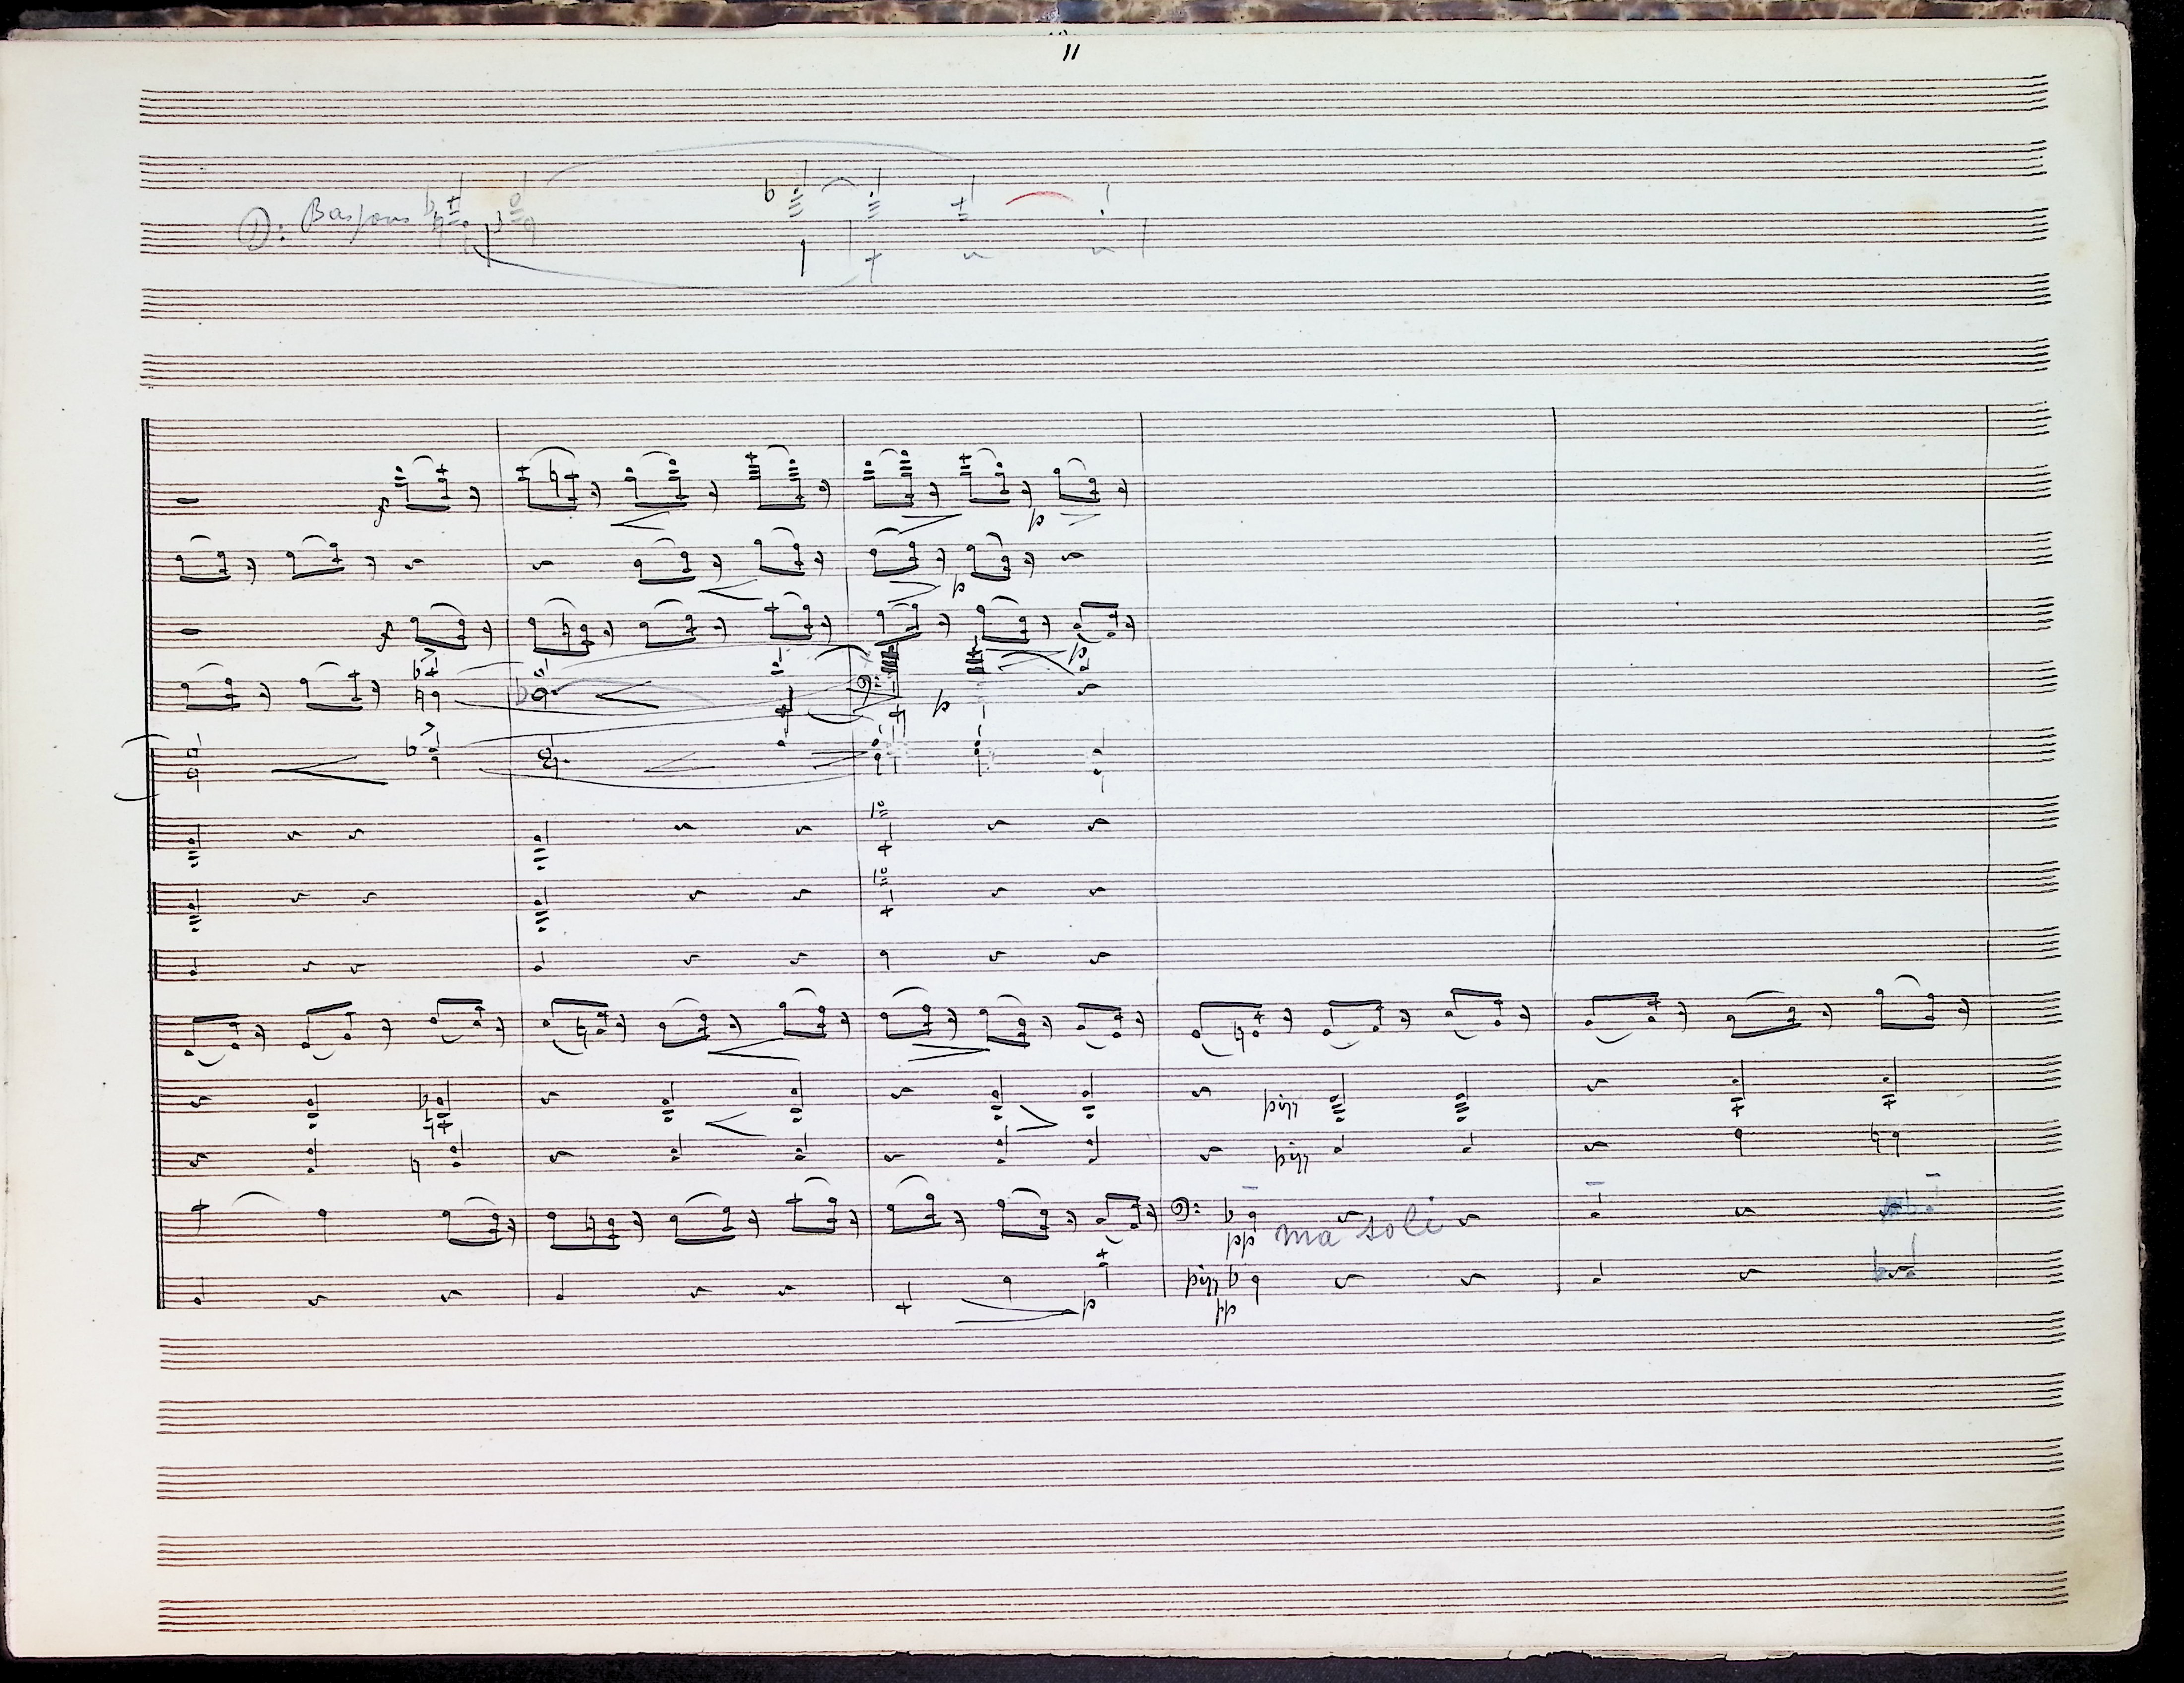 11
Bassons
f
p
p
f
p
p
pizz
pizz
pp ma soli
pizz
p
pp